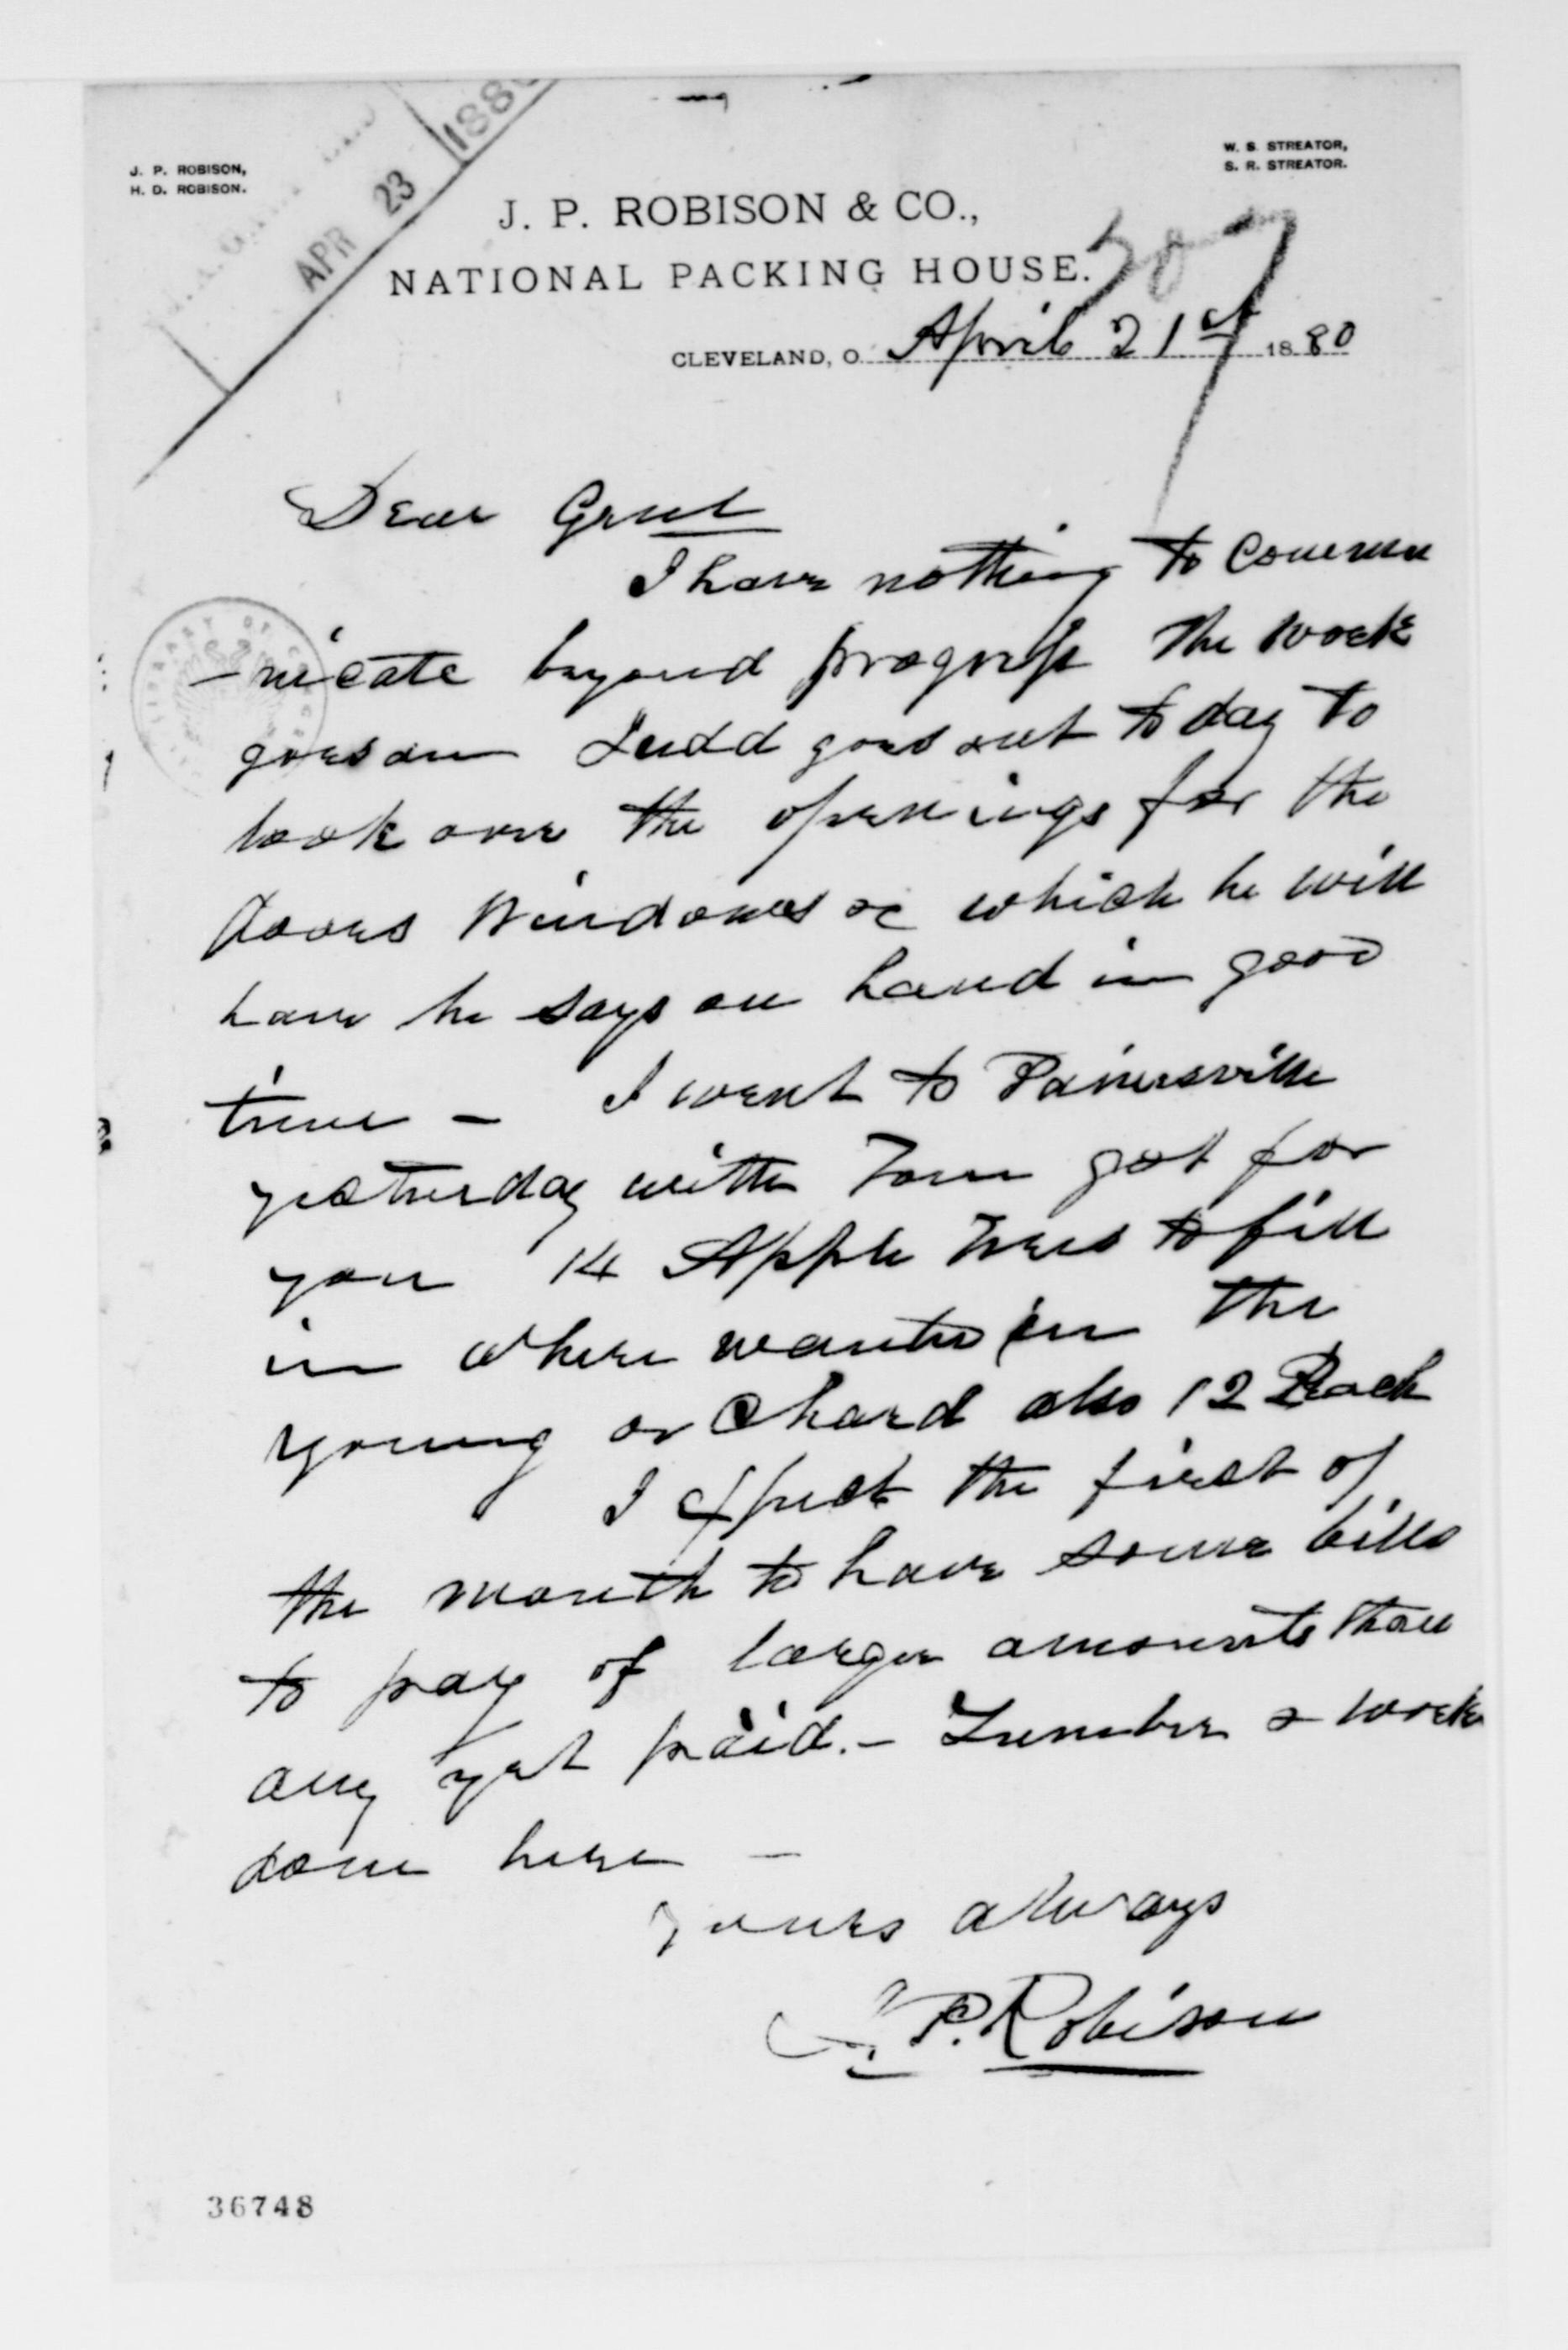 J. P. ROBISON,
H. D. ROBISON.
W. S. STREATOR,
S. R. STREATOR.
APR 23 1880
J. P. ROBISON & CO.,
NATIONAL PACKING HOUSE.
CLEVELAND, O. April 21st 1880
Dear Genl
I have nothing to commu
-nicate beyond progress the work
goes on Judd goes out to day to
look over the openings for the
doors windows &c which he will
have he says on hand in good
time - I went to Painesville
yesterday with Tom got for
you 14 Apple Trees to fill
in where wanted in the
young orchard also 12 Peach
I expect the first of
the month to have some bills
to pay of larger amounts than
any yet paid. - Lumber & work
done here -
yours always
J. P. Robison
LIBRARY OF CONGRESS
36748